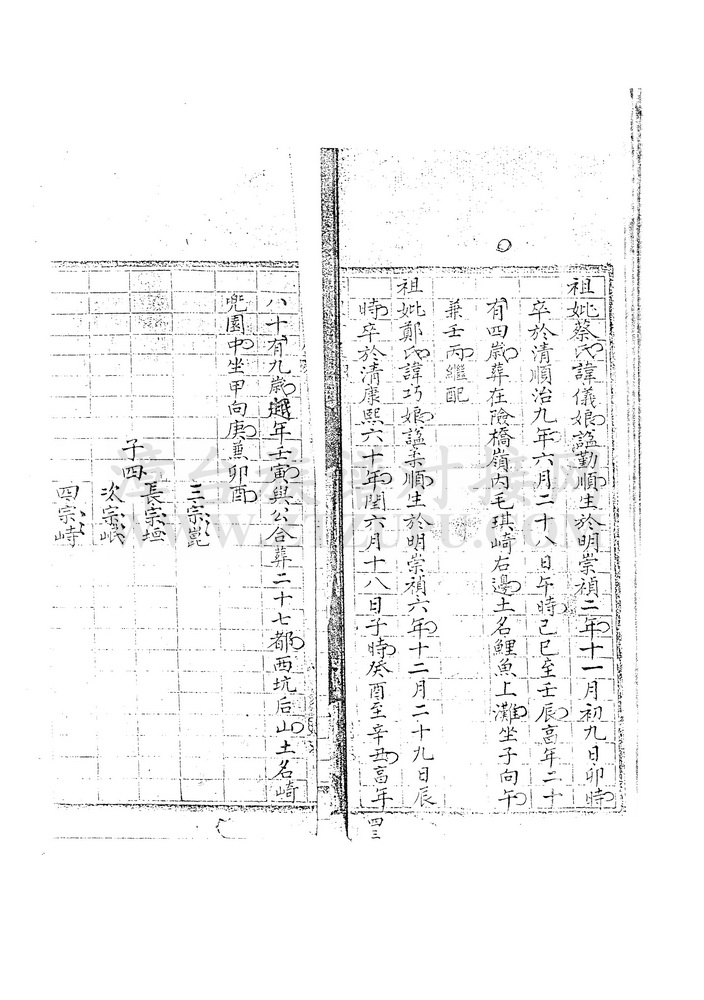 祖妣蔡氏諱儀娘謚勤順生於明崇禎二年十一月初九日卯時
卒於清順治九年六月二十八日午時己巳至壬辰高年二十
有四歲葬在險橋嶺內毛琪崎右邊土名鯉魚上灘坐子向午
兼壬丙繼配
祖妣鄭氏諱巧娘謚柔順生於明崇禎六年十二月二十九日辰
時卒於清康熙六十年閏六月十八日子時癸酉至辛丑高年
四三
八十有九歲越年壬寅與公合葬二十七都西坑后山土名崎
兜園中坐甲向庚兼卯酉
三宗崑
長宗垣
子四
次宗岷
四宗崎